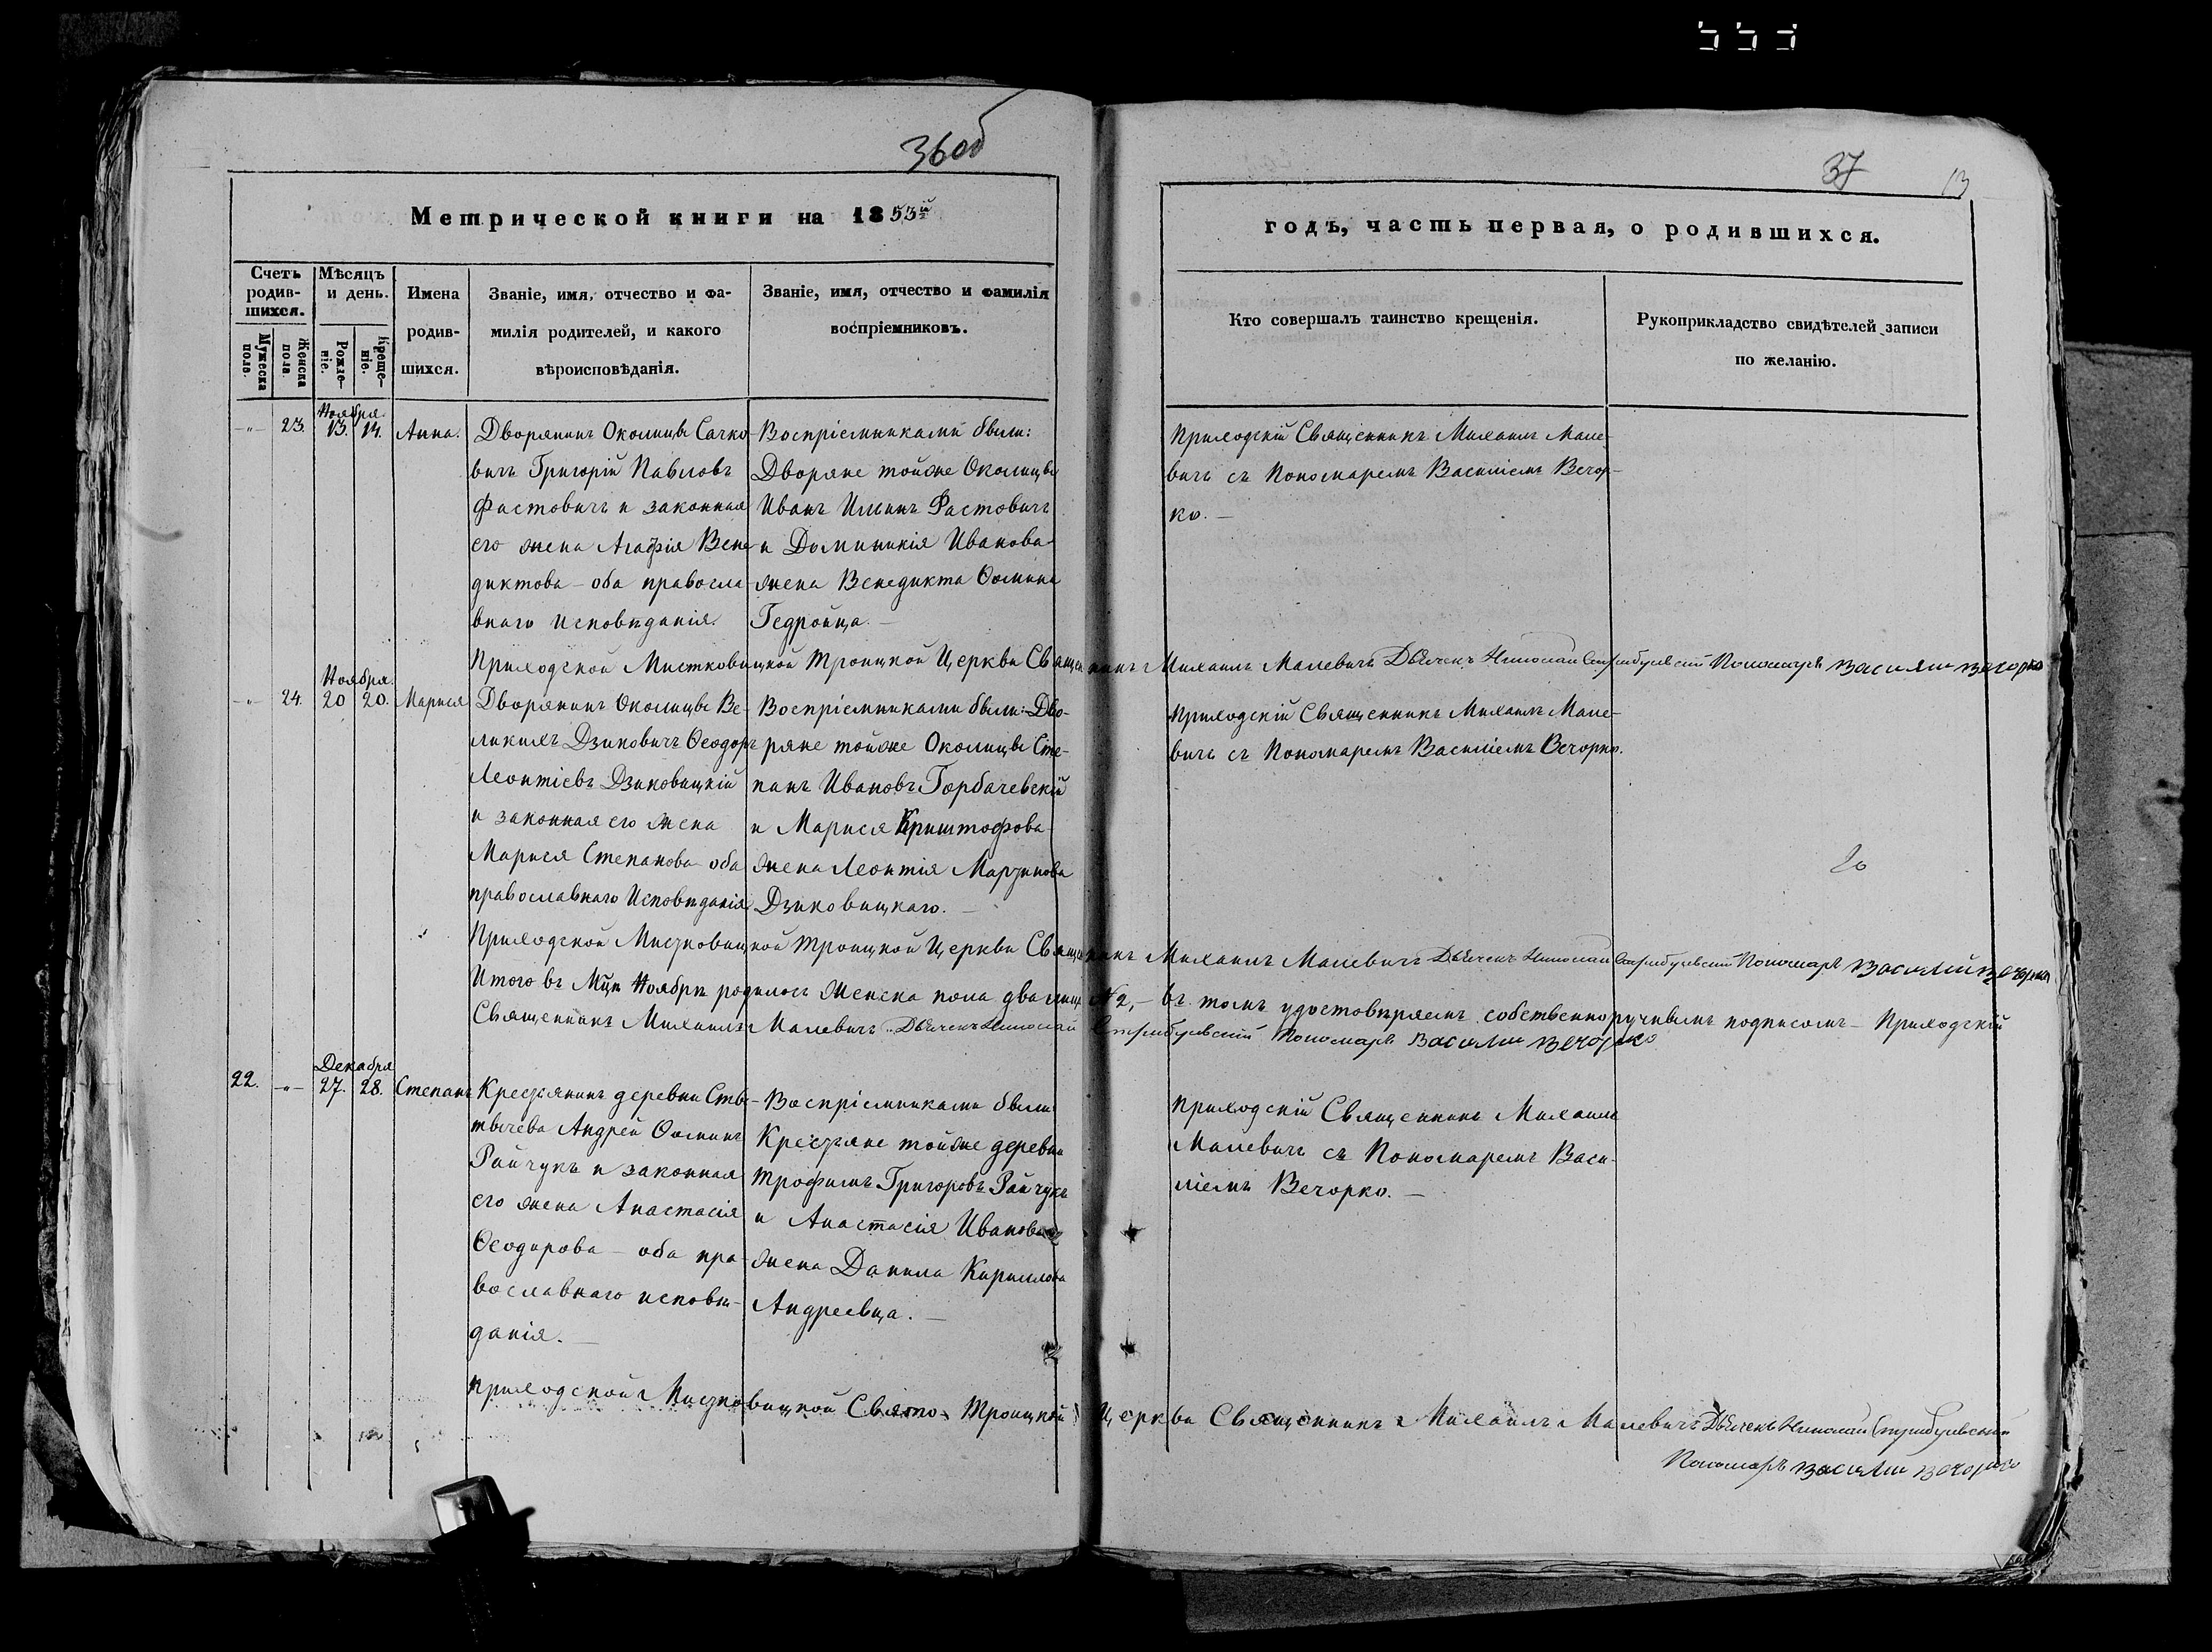 36об
37
13
Метрической книги на 1853й
годъ, часть первая, о родившихся.
Счетъ родив-шихся.
Мужеска пола.
Женска пола.
Мѣсяцъ и день.
Рожде-ніе.
Креще-ніе.
Имена родив-шихся.
Званіе, имя, отчество и фа-
милія родителей, и какого
вѣроисповѣданія.
Званіе, имя, отчество и фамилія
воспріемниковъ.
Кто совершалъ таинство крещенія.
Рукоприкладство свидѣтелей записи
по желанію.
Ноября
-„- 23. 13. 14. Анна.
Дворянинъ Околицы Сачко-
вичъ Григорій Павловъ
Фастовичъ и законная
его жена Агафія Вене-
диктова - оба правосла-
внаго исповѣданія.
Воспріемниками были:
Дворяне тойже Околицы
Иванъ Ильинъ Фастовичъ
и Доминикія Иванова
жена Венедикта Ѳомина
Гедройца. —
Приходскій Священникъ Михаилъ Мале-
вичъ съ Пономаремъ Василіемъ Вечор-
ко. —
Приходской Мистковицкой Троицкой Церкви Священникъ Михаилъ Малевичъ Дьячекъ Николай Пономарь Василий Вечорко
Ноября
-„- 24. 20 20. Марися
Дворянинъ Околицы Ве-
ликихъ Дзиковичъ Ѳеодоръ
Леонтіевъ Дзиковицкій
и законная его жена
Марися Степанова оба
православнаго Исповѣданія
Воспріемниками были: Дво-
ряне тойже Околицы Сте-
панъ Ивановъ Горбачевскій
и Марися Криштофова
жена Леонтія Марцинова
Дзиковицкаго. —
Приходскій Священникъ Михаилъ Мале-
вичъ съ Пономаремъ Василіемъ Вечорко.
Приходской Мистковицкой Троицкой Церкви Священникъ Михаилъ Малевичъ Дьячекъ Николай Пономарь Василий Вечорко
Итого въ Мцѣ Ноябрѣ родилось Женска пола два лица № 2, — въ томъ удостовѣряемъ собственноручнымъ подписомъ — Приходскій
Священникъ Михаилъ Малевичъ Дьячекъ Николай Пономарь Василий Вечорко
Декабря
22. -„- 27. 28. Степанъ
Крестянинъ деревни Сты-
тычева Андрей Ѳоминъ
Райчукъ и законная
его жена Анастасія
Ѳеодорова - оба пра-
вославнаго исповѣ-
данія. —
Воспріемниками были
Крестяне тойже деревни
Трофимъ Григоровъ Райчукъ
и Анастасія Иванова
жена Данила Кирилова
Андреевца. —
Приходскій Священникъ Михаилъ
Малевичъ съ Пономаремъ Васи-
ліемъ Вечорко. —
Приходской Мистковицкой Свято-Троицкой Церкви Священникъ Михаилъ Малевичъ Дьячекъ Николай
Пономарь Василий Вечорко